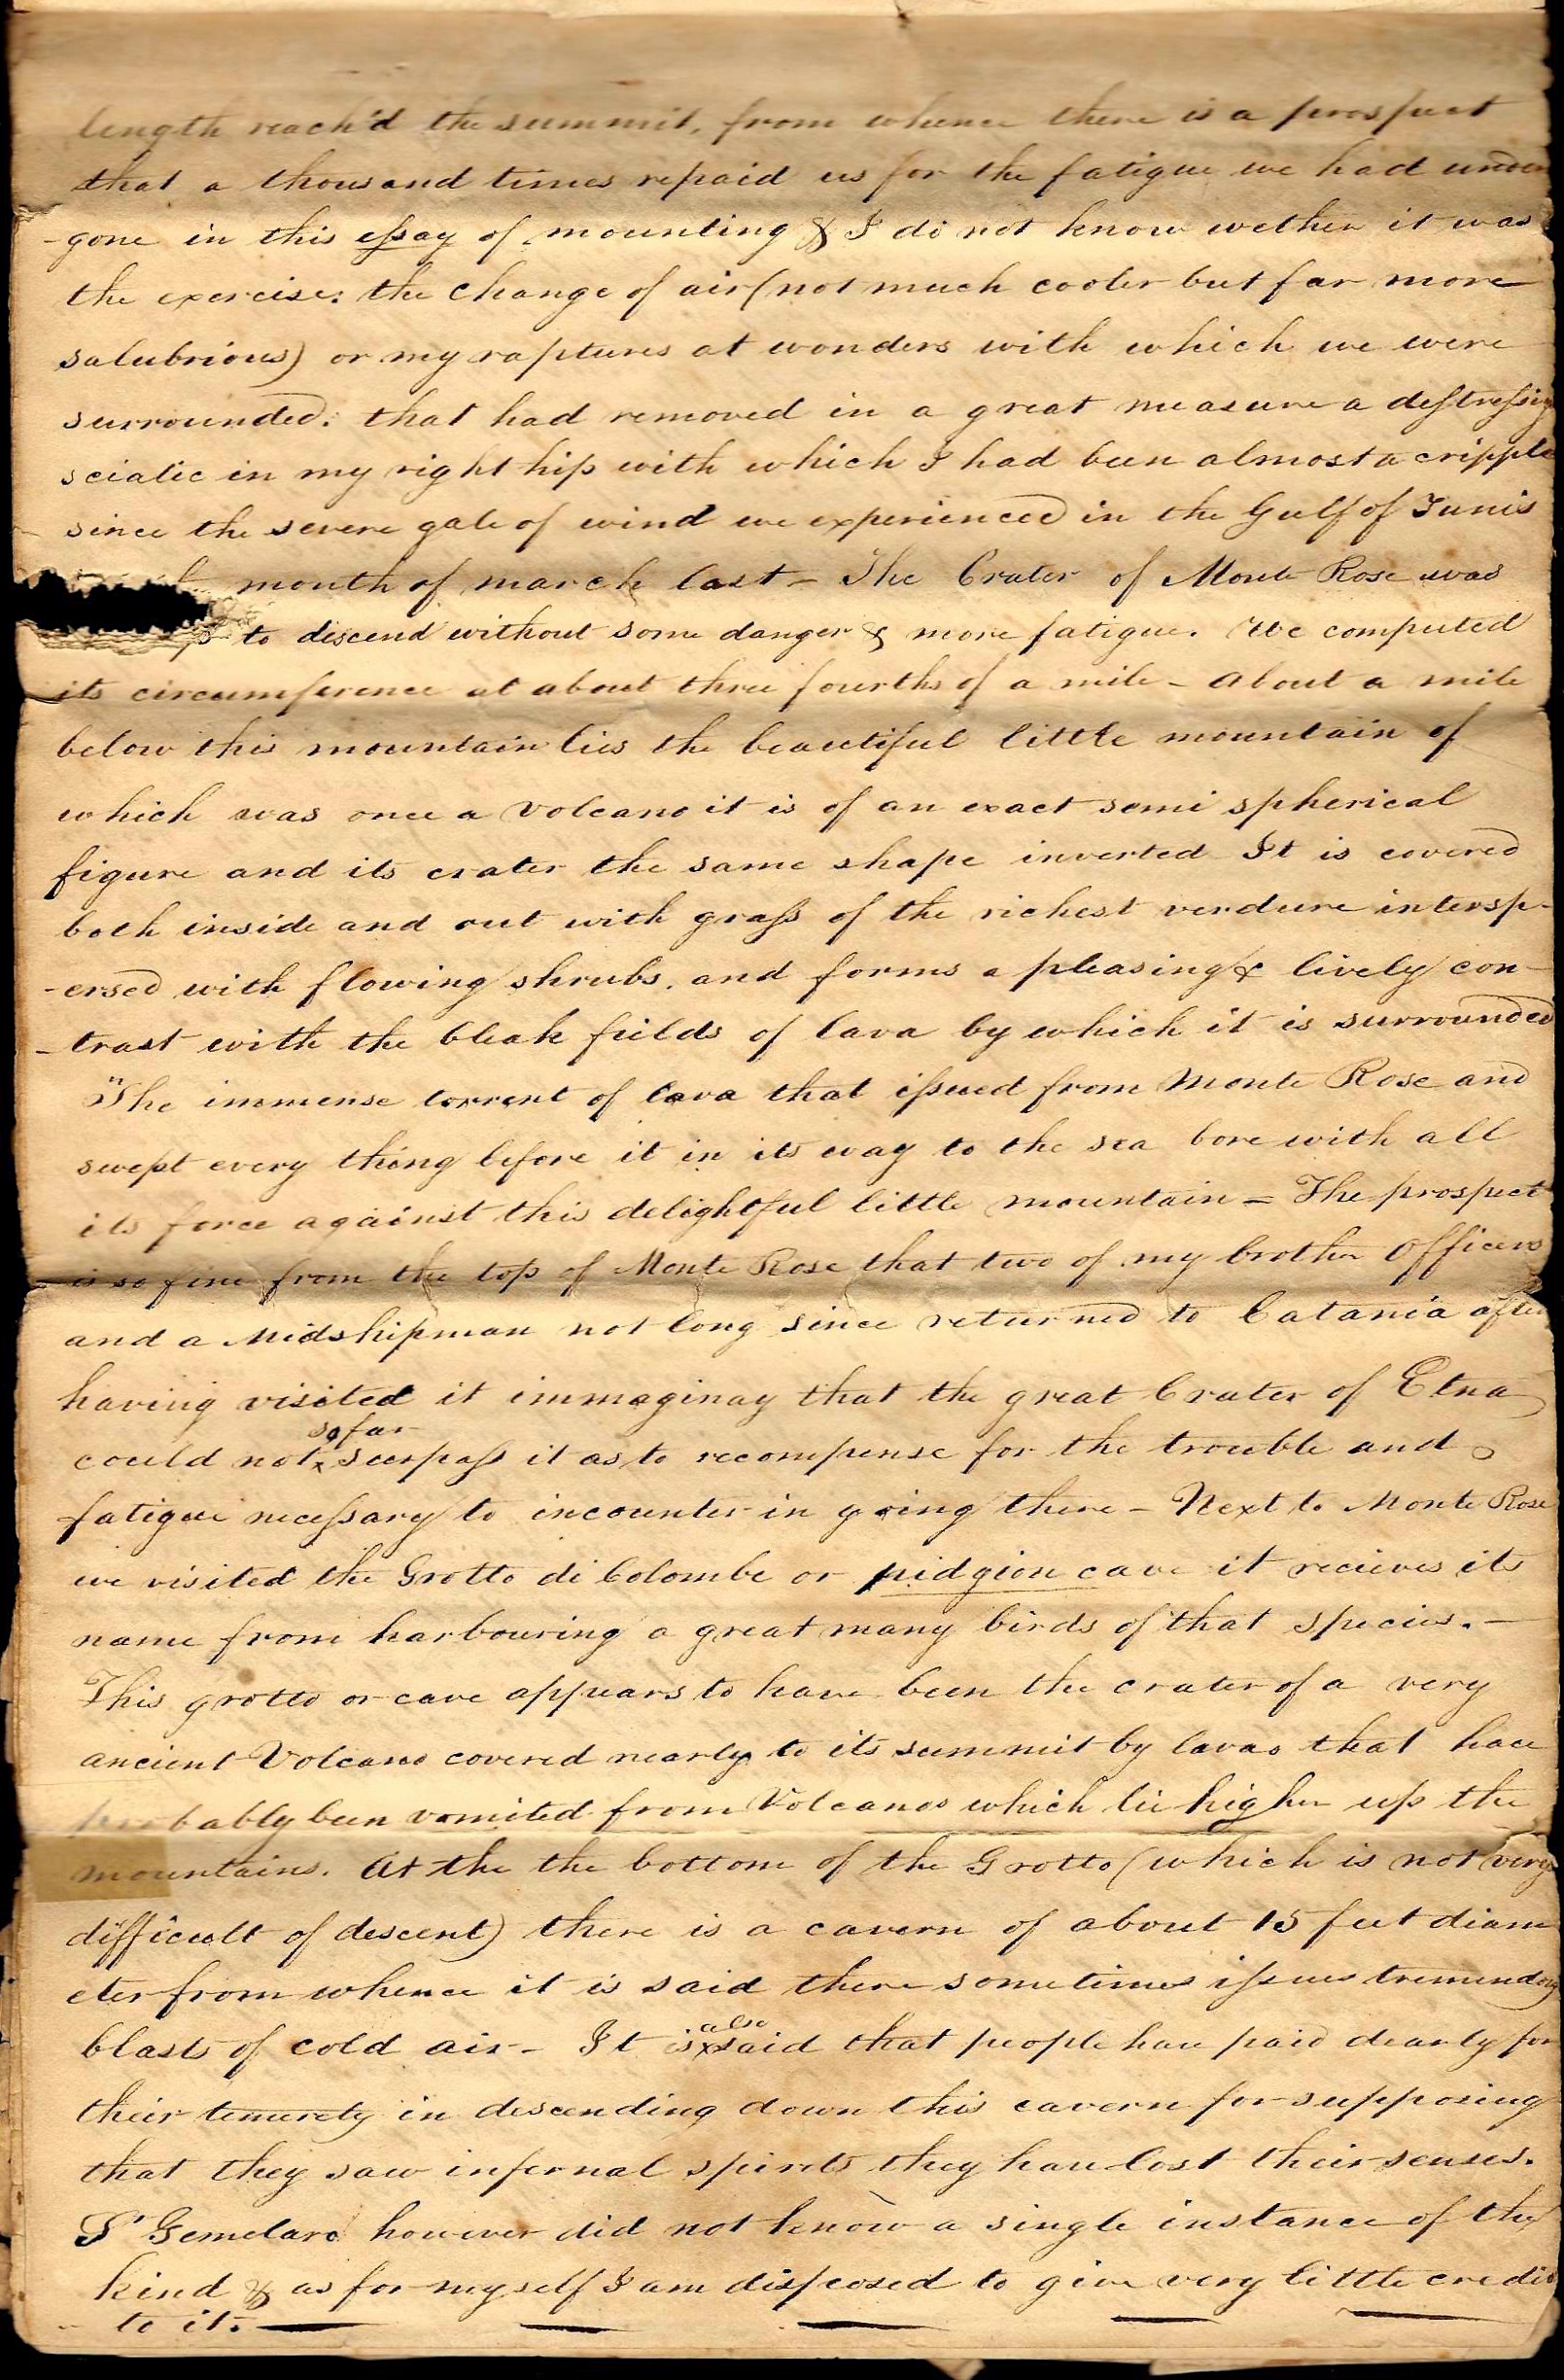 length reach'd the summit, from whence there is a prospect
that a thousand times repaid us for the fatigue we had under
-gone in this essay of mounting & I do not know wether it was
the exercise: the change of air (not much cooler but far more
salubrious) or my raptures at wonders with which we were
surrounded: that had removed in a great measure a destressing
sciatic in my right hip with which I had been almost a cripple
since the severe gale of wind we experienced in the Gulf of Tunis
month of march last - The Crater of Monte Rose was
to discend without some danger & more fatigue. We computed
its circumference at about three fourths of a mile - about a mile
below this mountain lies the beautiful little mountain of
which was once a Volcano it is of an exact semi spherical
figure and its crater the same shape inverted It is covered
both inside and out with grass of the richest verdure intersp-
-ersed with flowing shrubs, and forms a pleasing & lively con-
-trast with the bleak fields of lava by which it is surrounded
"The immense torrent of lava that issued from Monte Rose and
swept every thing before it in its way to the sea bore with all
its force against this delightful little mountain = The prospect
is so fine from the top of Monte Rose that two of my brother Officers
and a Midshipman not long since returned to Catania after
having visited it immaginay that the great Crater of Etna
could not so far surpass it as to recompense for the trouble and
fatigue necessary to incounter in going there - Next to Monte Rose
we visited the Grotto di Colombe or pidgion cave it recieves its
name from harbouring a great many birds of that species. -
This grotto or cave appears to have been the crater of a very
ancient Volcano covered nearly to its summit by lavas that have
probably been vomited from Volcanos which lie higher up the
mountains. At the the bottom of the Grotto (which is not very
difficult of descent) there is a cavern of about 15 feet diam
eter from whence it is said there sometimes issues tremendous
blasts of cold air - It is also said that people have paid dearly for
their temerety in descending down this cavern for supposing
that they saw infernal spirits they have lost their senses.
Sr Gemelaro however did not know a single instance of the
kind & as for myself I am disposed to give very little credit
to it.